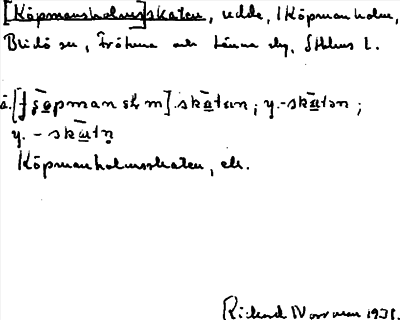 [Köpmansholms]skaten, udde, i Köpmanholm,
Blidö sn, Frötuna och Länna skg, Sthlms l.
ä. skatan; y. -skatən;
y. -skatn
Köpmanholmsskaten, ek.
Rickard Norrman 1931.